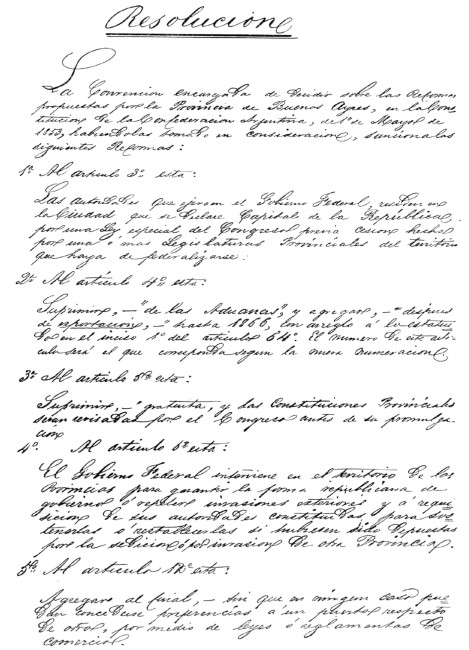 Resolucion
La Convencion encargada de decidir sobre las Reformas
propuestas por la Provincia de Buenos Ayres, en la Cons
titucion de la Confederacion Argentina, del 1º de Mayo de
1853, habiendolas tomado en consideracion, sanciona las
siguientes Reformas:
1ª. Al articulo 3º. esta:
Las autoridades que ejercen el Gobierno Federal, residen en
la Ciudad, que se declare Capital de la República
por una Ley especial del Congreso, previa cesion hecha
por una ó mas Legislaturas Provinciales del territorio
que haya de federalizarse.
2ª. Al artículo 4º. esta:
Suprimir, – "de las Aduanas", y agregar, – "despues
de esportacion, – "hasta 1866, con arreglo á lo estatui
do en el inciso 1º del artículo 64º. El numero de este artí-
culo será el que corresponda segun la nueva numeracion
3ª. Al articulo 5º. esta:
Suprimir, – gratuita, y las Constituciones Provinciales
seran revisadas por el Congreso antes de su promulga-
cion
4ª. Al articulo 6º. esta:
El Gobierno Federal interviene en el territorio de las
Provincias para garantir la forma republicana de
gobierno, ó repeler invasiones esteriores, y a requi
sicion de sus autoridades constituidas para sos
tenerlas ó restablecerlas si hubiesen sido depuestas
por la sedicion ó por invasion de otra Provincia.
5ª. Al articulo 12º. esta:
Agregar al final, – sin que en ningun caso pue
dan concederse preferencias a un puerto respecto
de otro, por medio de leyes ó reglamentos de
comercio.